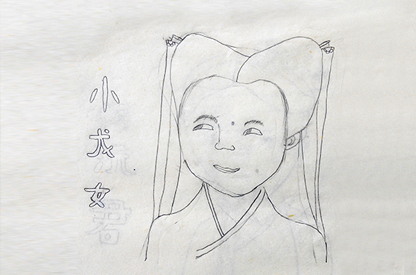 小龙女